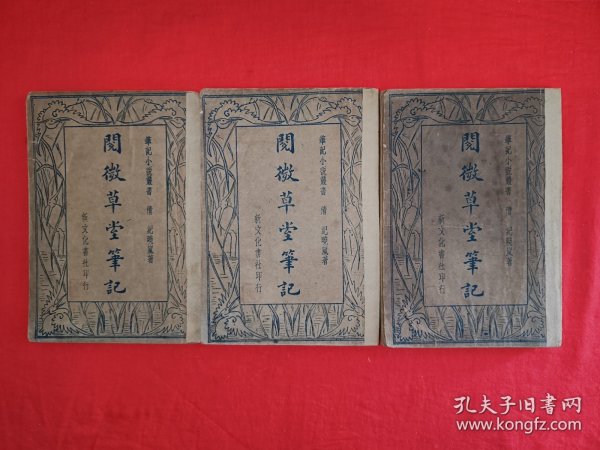 筆記小說叢書 清 紀曉嵐著
閱微草堂筆記
新文化書社印行
筆記小說叢書 清 紀曉嵐著
閱微草堂筆記
新文化書社印行
筆記小說叢書 清 紀曉嵐著
閱微草堂筆記
新文化書社印行
孔夫子旧书网
www.kongfz.com